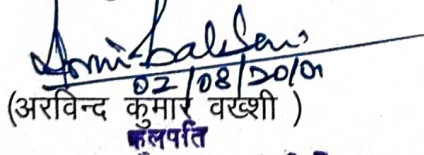 02/08/2001
(अरविन्द कुमार वख्शी )
कुलपति